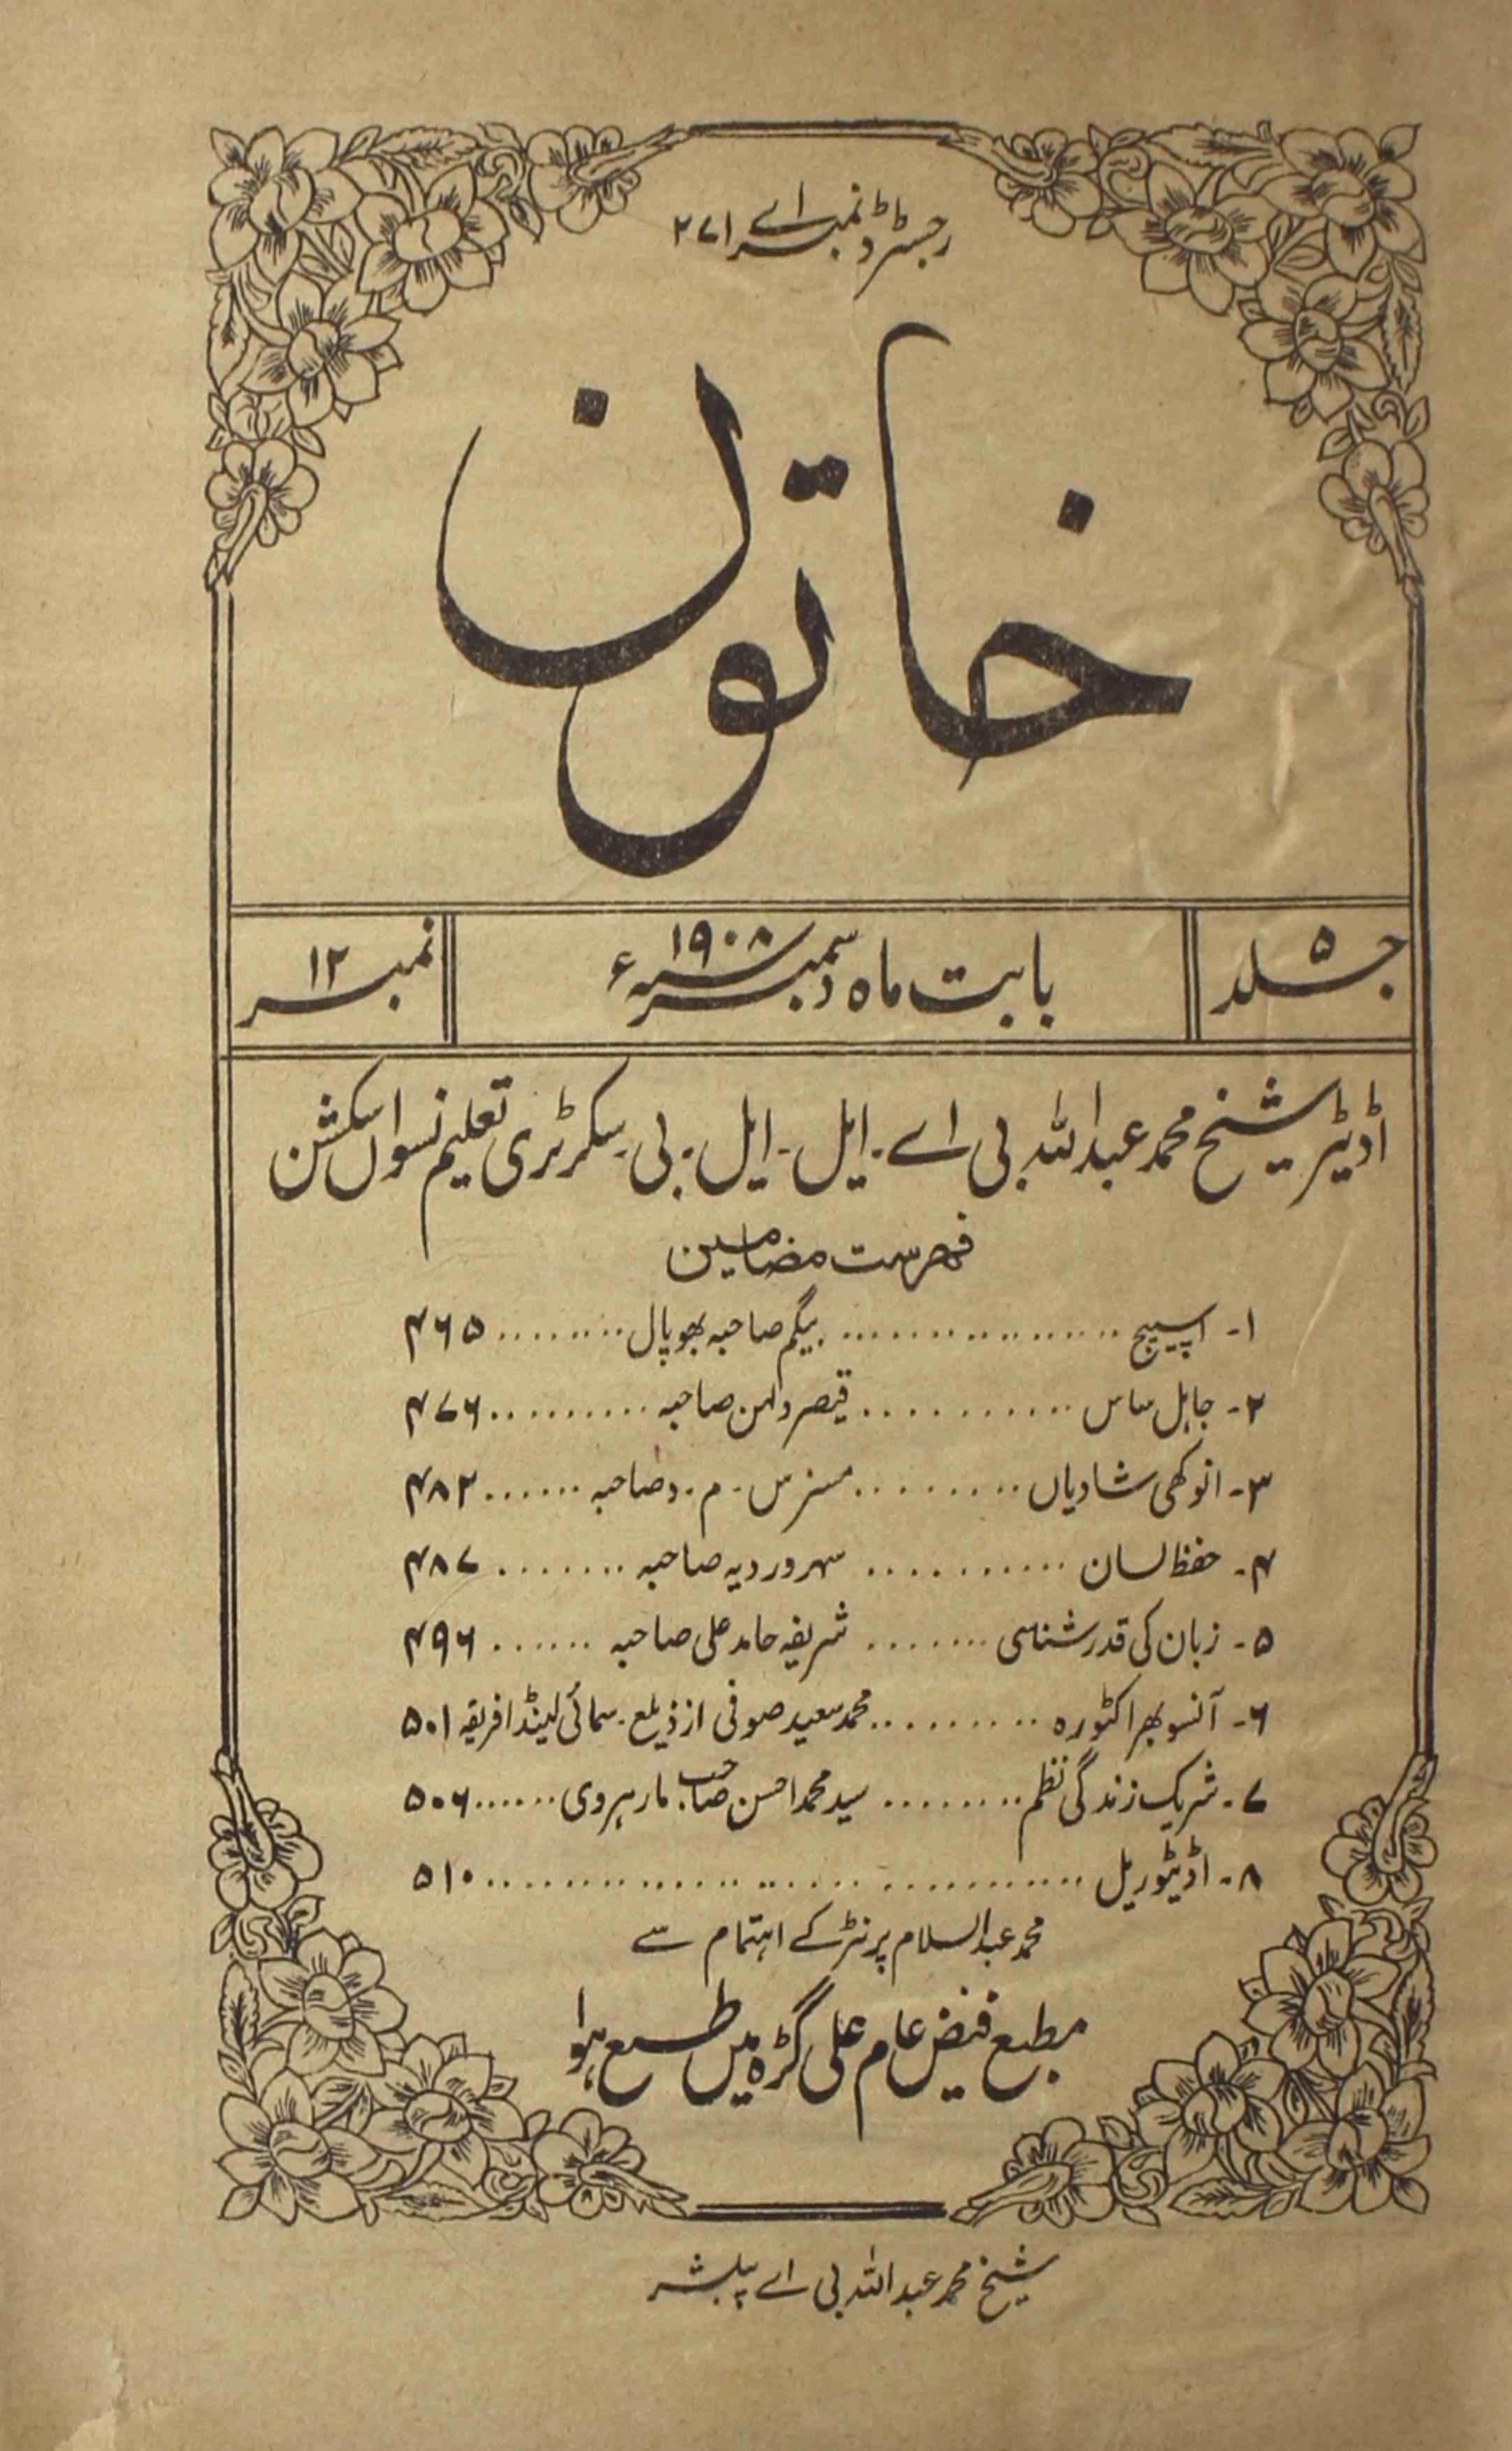 رجسٹرڈ نمبر اے ۲۷۱
خاتون
جلد ۵
بابت ماہ دسمبر سنہ ۱۹۰۸ء
نمبر ۱۲
اڈیٹر شیخ محمد عبداللہ بی اے ۔ ایل ۔ ایل ۔ بی ۔ سکرٹری تعلیم نسواں سکشن
فہرست مضامین
۱ ۔ اسپیچ .................. بیگم صاحبہ بھوپال ........ ۴۶۵
۲ ۔ جاہل ساس ........... قیصر دلہن صاحبہ ......... ۴۷۶
۳ ۔ انوکھی شادیاں ......... مسز س ۔ م ۔ د صاحبہ ...... ۴۸۲
۴ ۔ حفظ لسان ........... سہروردیہ صاحبہ ........ ۴۸۷
۵ ۔ زبان کی قدر شناسی ........ شریفہ حامد علی صاحبہ ...... ۴۹۶
۶ ۔ آنسو بھرا کٹورہ .......... محمد سعید صوفی از ذیلع ۔ سمائی لینڈ افریقہ ۵۰۱
۷ ۔ شریک زندگی نظم ........ سید محمد احسن صاحب مارہروی ...... ۵۰۶
۸ ۔ اڈیٹوریل .............................. ۵۱۰
محمد عبدالسلام پرنٹر کے اہتمام سے
مطبع فیض عام علی گڑہ میں طبع ہوا
شیخ محمد عبداللہ بی اے پبلشر